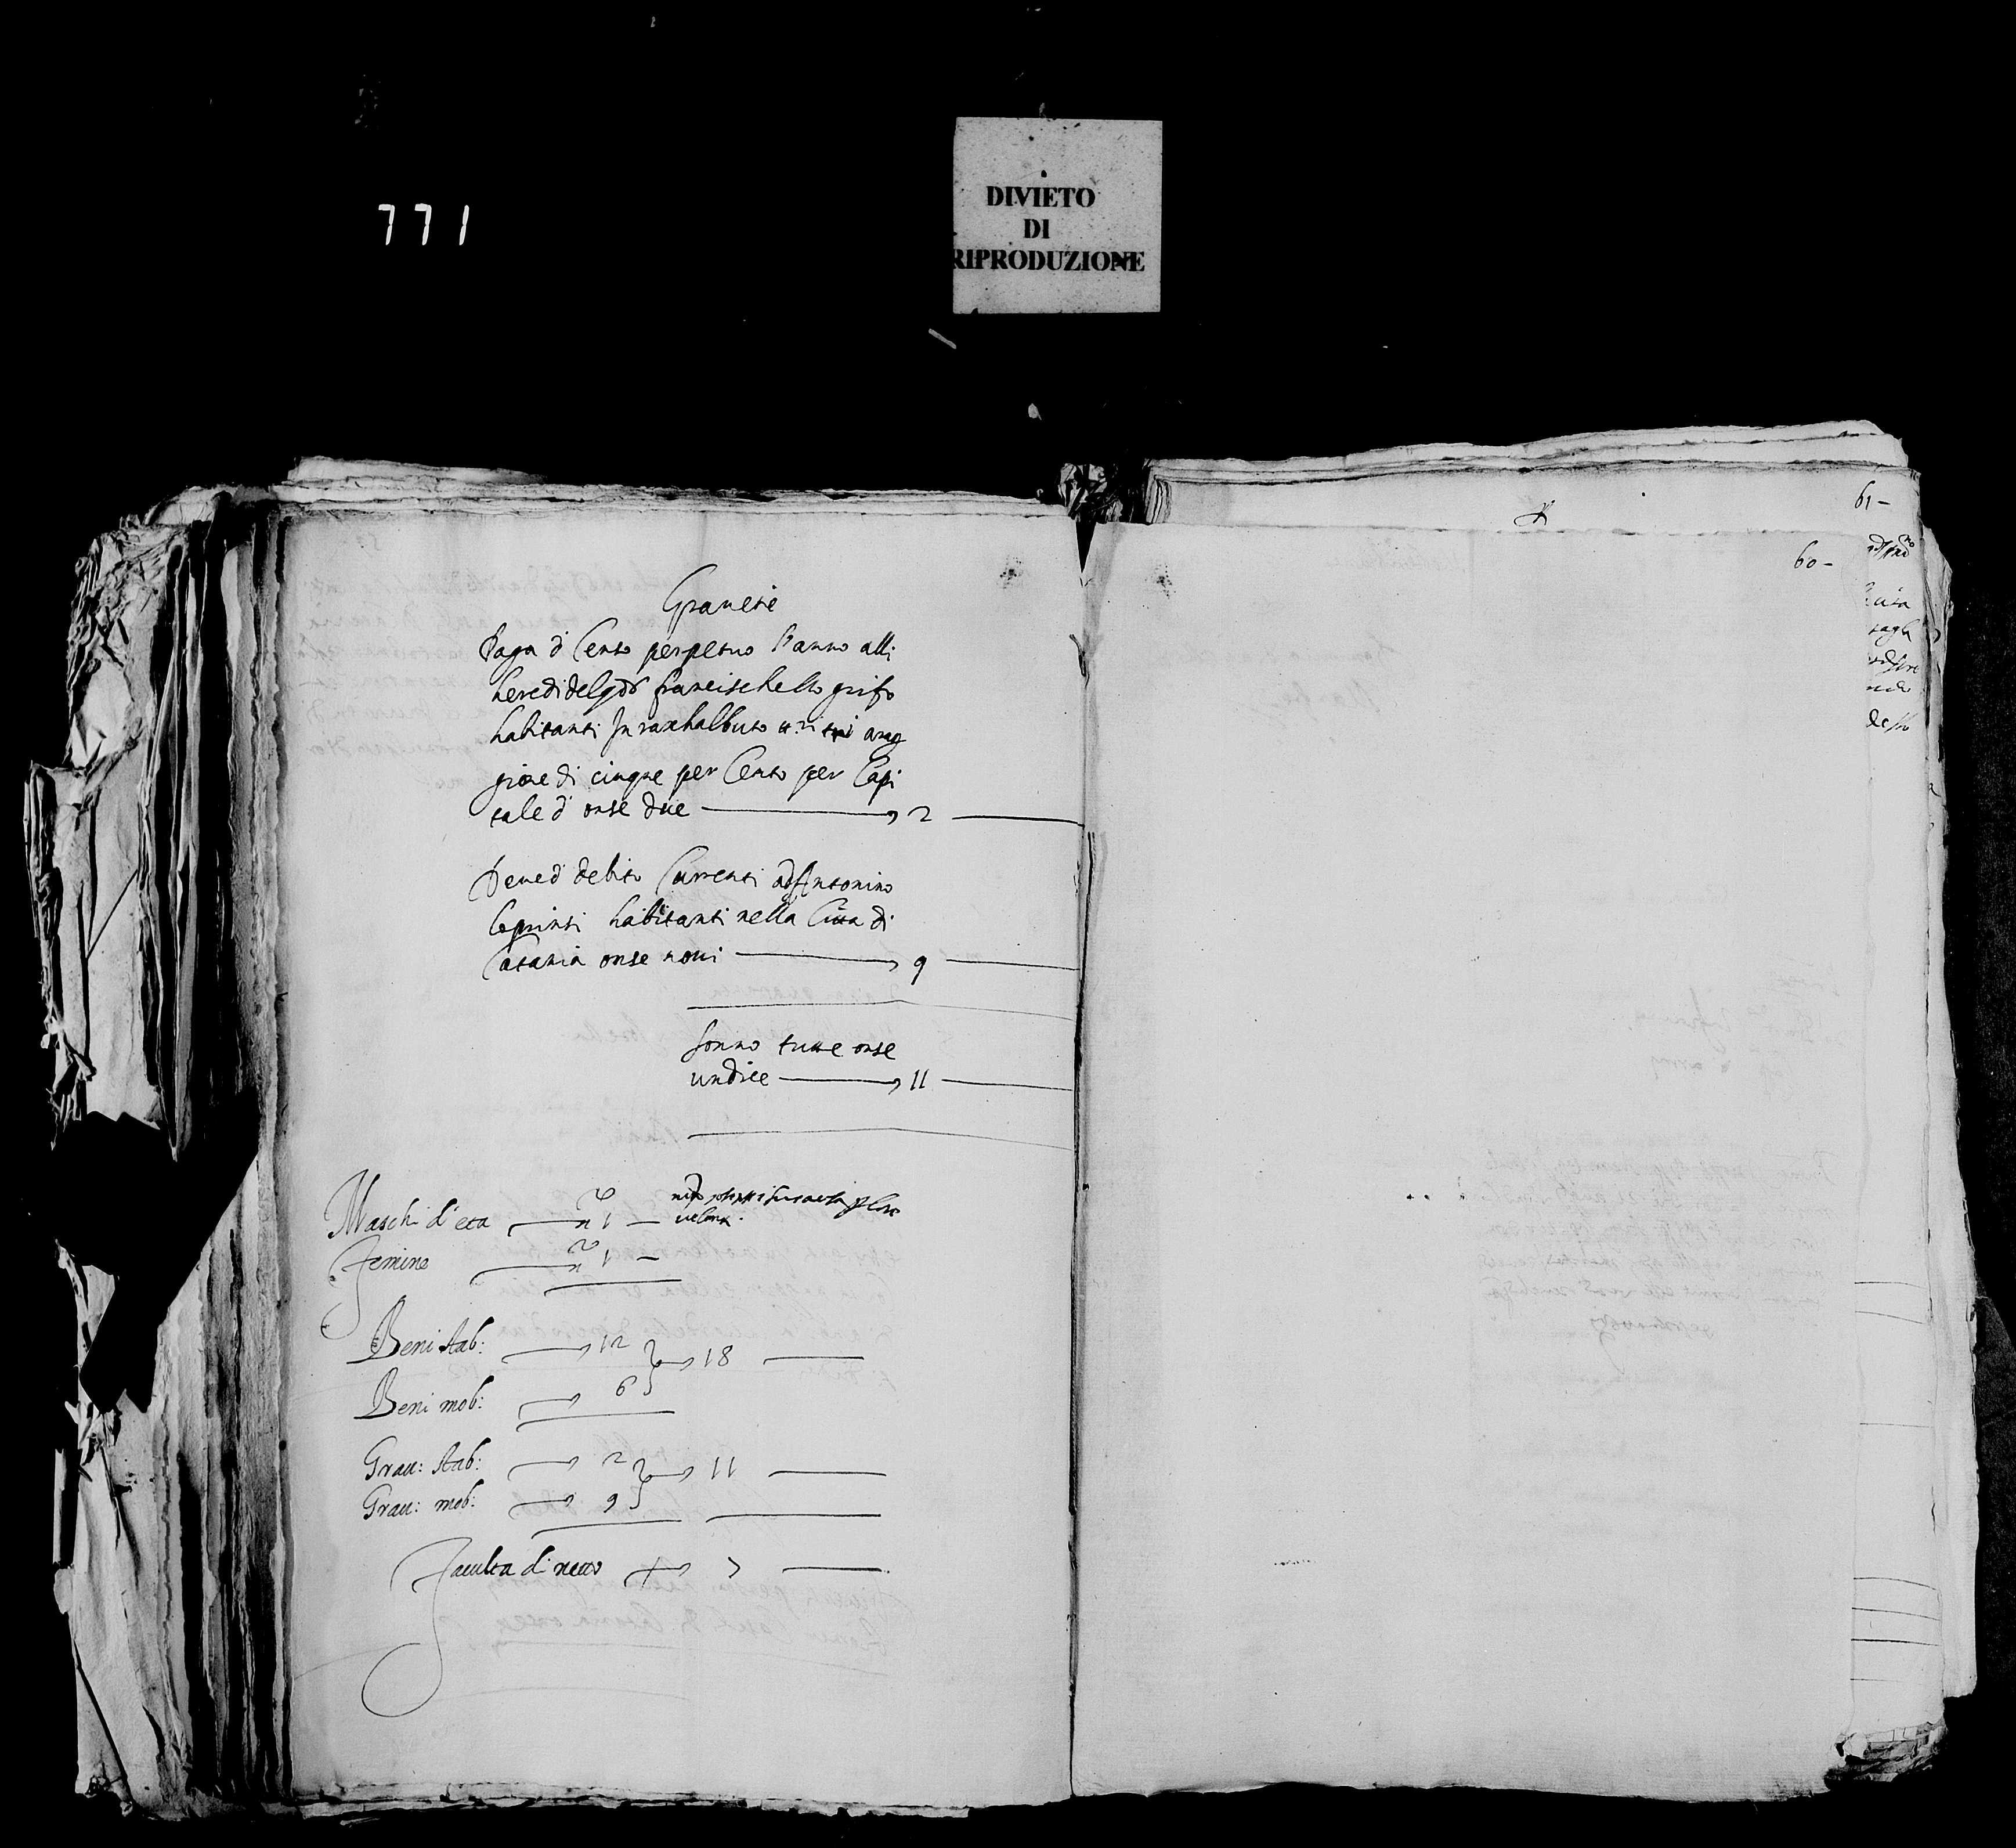 771
DIVIETO
DI
RIPRODUZIONE
61 -
60 -
Graveze
Paga di Censo perpetuo l'anno alli
heredi del qdr francischello grifo
habitanti In raxhalbuto
gione di cinque per Cento per Capi
tale d' onse due 2
Deve di debito Currenti ad Antonino
habitanti nella Citta di
Catania onse novi 9
sonno tutte onse
undice 11
Maschi d'eta n 1
femine n 1 -
Beni stab: 12
18
Beni mob: 6
Grav: stab: 2
11
Grav: mob: 9
faculta di netto 7